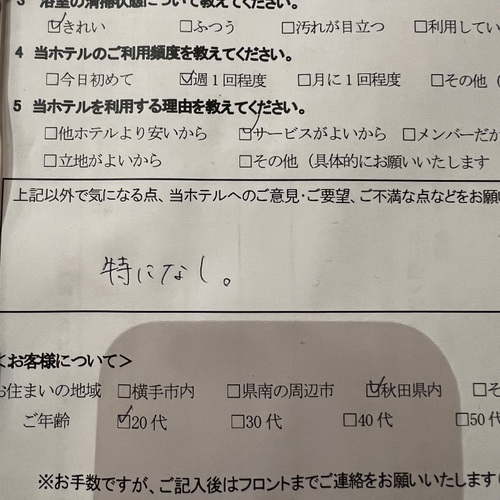 3 浴室の清掃状態について教えてください。
☑きれい □ふつう □汚れが目立つ □利用してい
4 当ホテルのご利用頻度を教えてください。
□今日初めて ☑週1回程度 □月に1回程度 □その他（
5 当ホテルを利用する理由を教えてください。
□他ホテルより安いから ☑サービスがよいから □メンバーだか
□立地がよいから □その他（具体的にお願いいたします
上記以外で気になる点、当ホテルへのご意見・ご要望、ご不満な点などをお願
特になし。
＜お客様について＞
お住まいの地域 □横手市内 □県南の周辺市 ☑秋田県内 □そ
ご年齢 ☑20代 □30代 □40代 □50代
※お手数ですが、ご記入後はフロントまでご連絡をお願いいたします